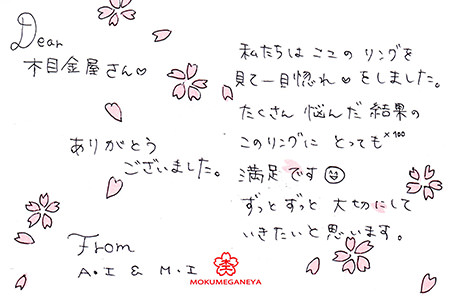 Dear
木目金屋さん♡
ありがとう
ございました。
From
A・I & M・I
私たちは ここの リングを
見て一目惚れ♡をしました。
たくさん 悩んだ 結果の
このリングに とっても×100
満足です☺
ずっとずっと 大切にして
いきたいと思います。
MOKUMEGANEYA